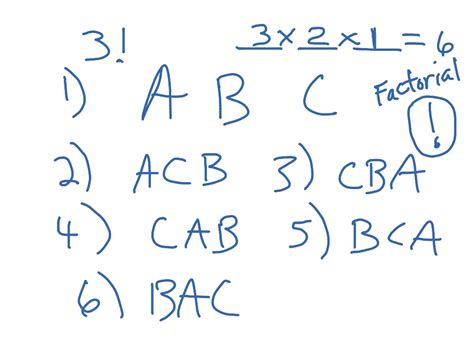 3! 3 x 2 x 1 = 6
1) A B C
Factorial
!
2) ACB 3) CBA
4) CAB 5) BCA
6) BAC